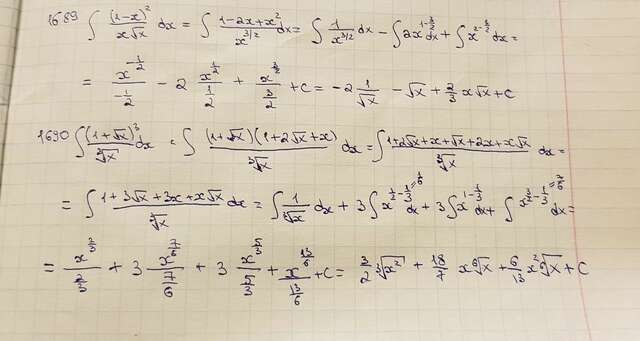 1689 ∫ (1-x)²/(x√x) dx = ∫ (1-2x+x²)/x^(3/2) dx = ∫ 1/x^(3/2) dx - ∫ 2x^(1-3/2) dx + ∫ x^(2-3/2) dx =
= x^(-1/2)/(-1/2) - 2 x^(1/2)/(1/2) + x^(3/2)/(3/2) + C = -2 1/√x - √x + 2/3 x√x + C
1690 ∫ (1+√x)³/∛x dx = ∫ (1+√x)(1+2√x+x)/∛x dx = ∫ (1+2√x+x+√x+2x+x√x)/∛x dx =
= ∫ (1+3√x+3x+x√x)/∛x dx = ∫ 1/∛x dx + 3∫ x^(1/2-1/3=1/6) dx + 3∫ x^(1-1/3) dx + ∫ x^(3/2-1/3=7/6) dx =
= x^(2/3)/(2/3) + 3 x^(7/6)/(7/6) + 3 x^(5/3)/(5/3) + x^(13/6)/(13/6) + C = 3/2 ∛x² + 18/7 x ⁶√x + 6/13 x² ⁶√x + C